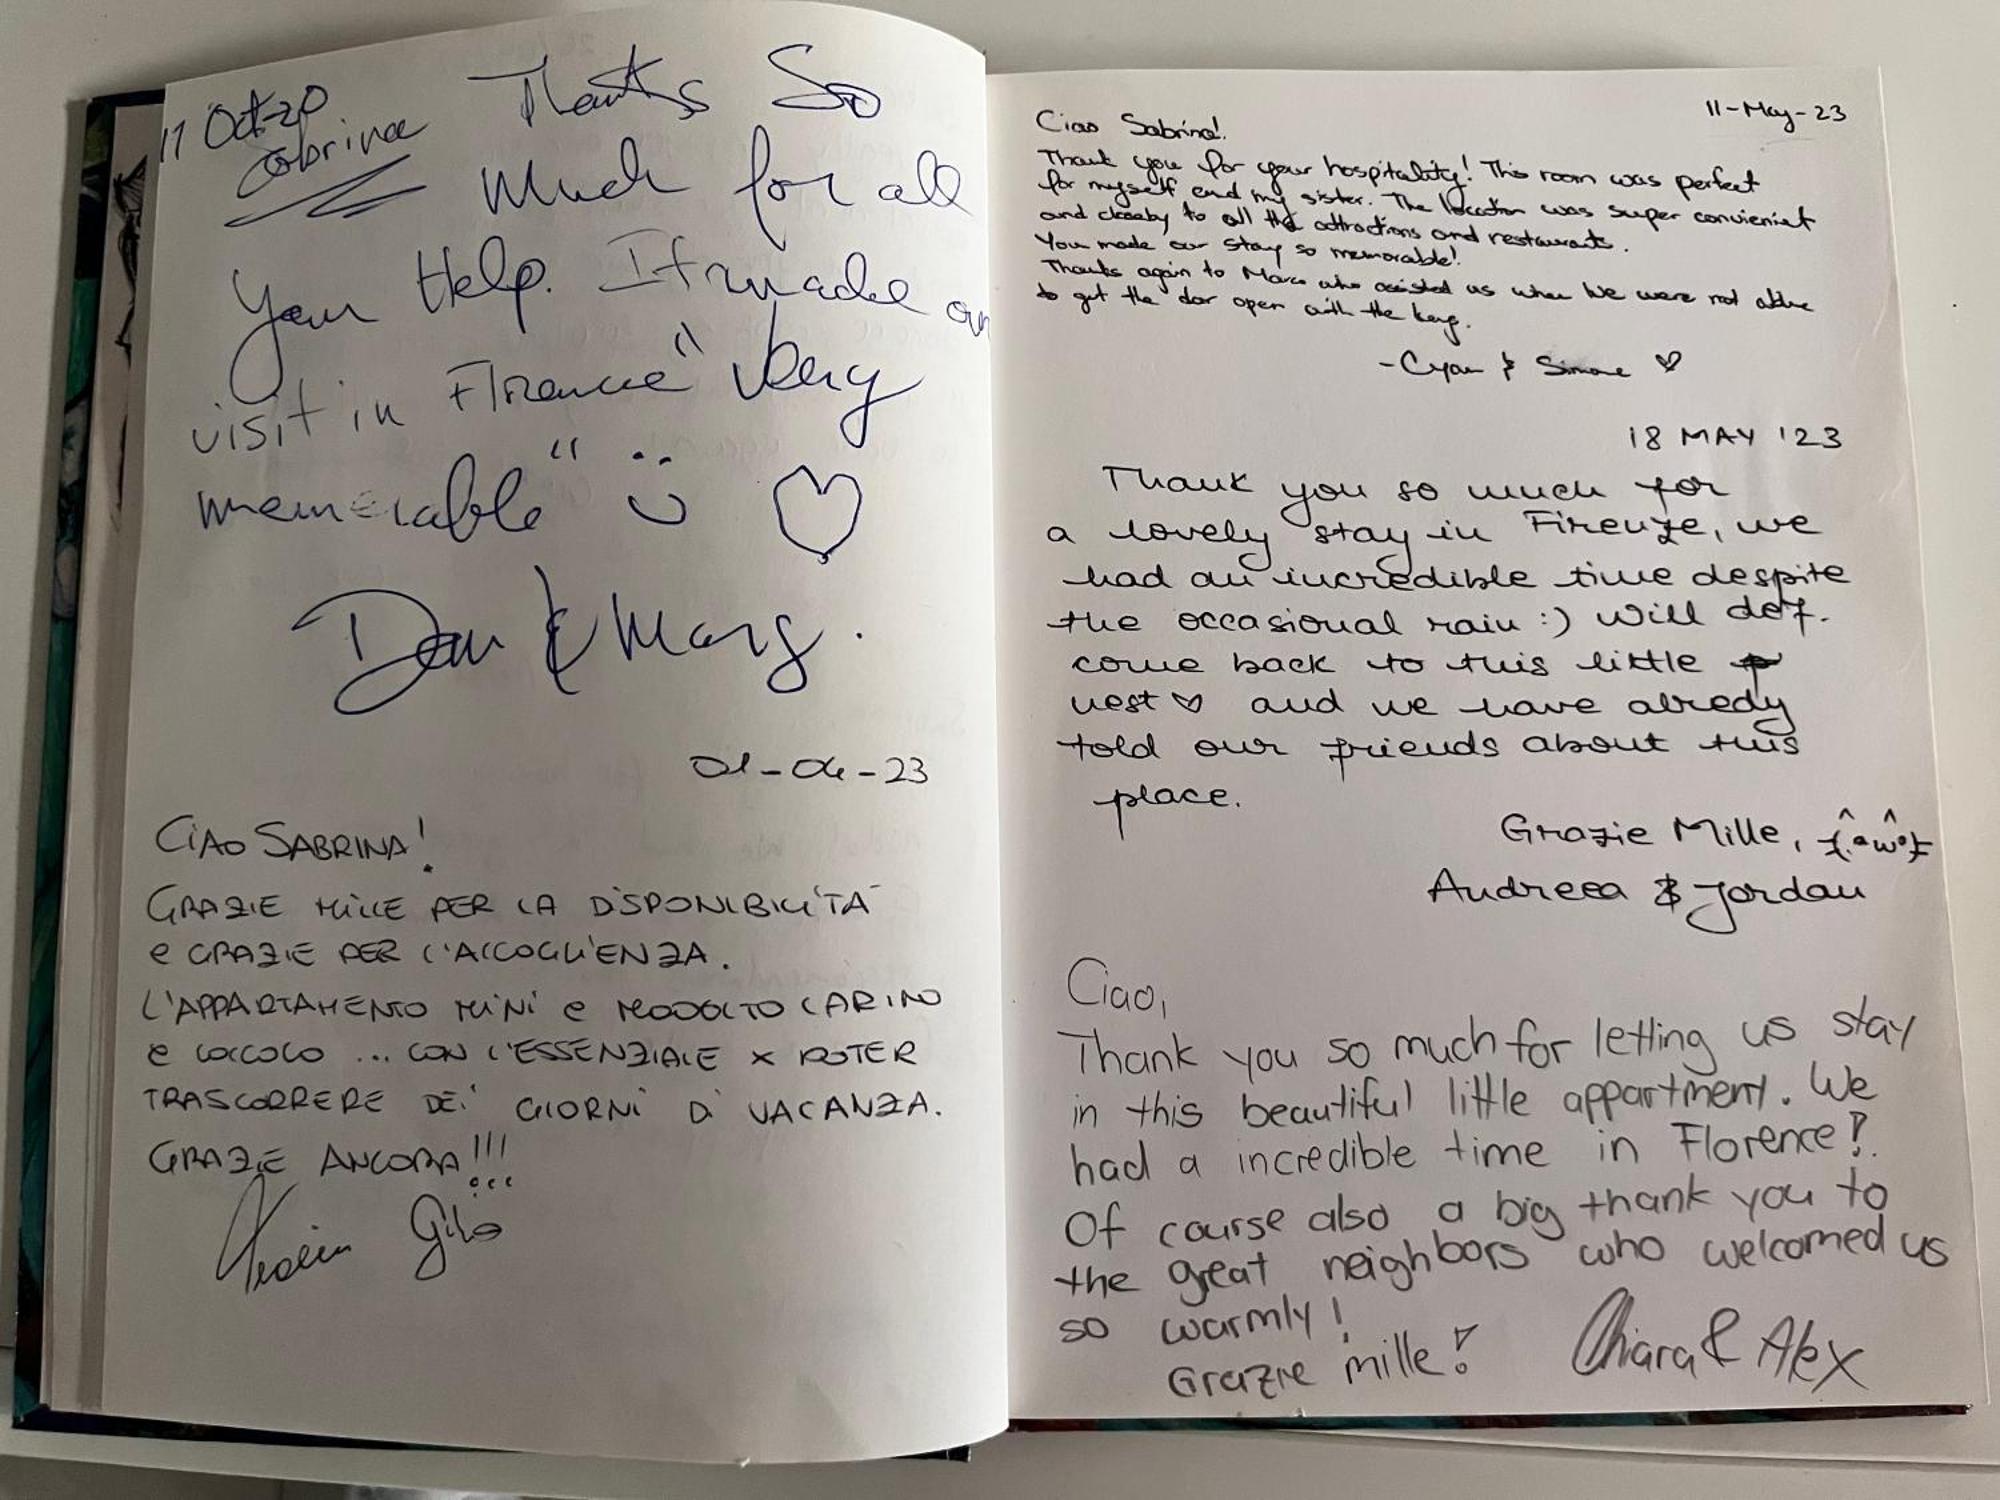 11 Oct-20
Sabrina Thanks So
Much for all
your Help. It made our
visit in Florence "Very
memorable" :)
Dan & Marg.
01-04-23
CIAO SABRINA!
GRAZIE MILLE PER LA DISPONIBILITÀ
e GRAZIE PER L'ACCOGLIENZA.
L'APPARTAMENTO MINI e MOOOLTO CARINO
e COCCOLO ... CON L'ESSENZIALE X POTER
TRASCORRERE DEI GIORNI DI VACANZA.
GRAZIE ANCORA!!!
11-May-23
Ciao Sabrina!
Thank you for your hospitality! This room was perfect
for myself and my sister. The location was super convienient
and closeby to all the attractions and restaurants.
You made our stay so memorable!
Thanks again to Marco who assisted us when we were not able
to get the door open with the key.
-Cyan & Simone ♡
18 MAY '23
Thank you so much for
a lovely stay in Firenze, we
had an incredible time despite
the occasional rain :) Will def.
come back to this little
nest ♡ and we have alredy
told our friends about this
place.
Grazie Mille,
Andreea & Jordan
Ciao,
Thank you so much for letting us stay
in this beautiful little appartment. We
had a incredible time in Florence!
Of course also a big thank you to
the great neighbors who welcomed us
so warmly!
Grazie mille!
Chiara & Alex